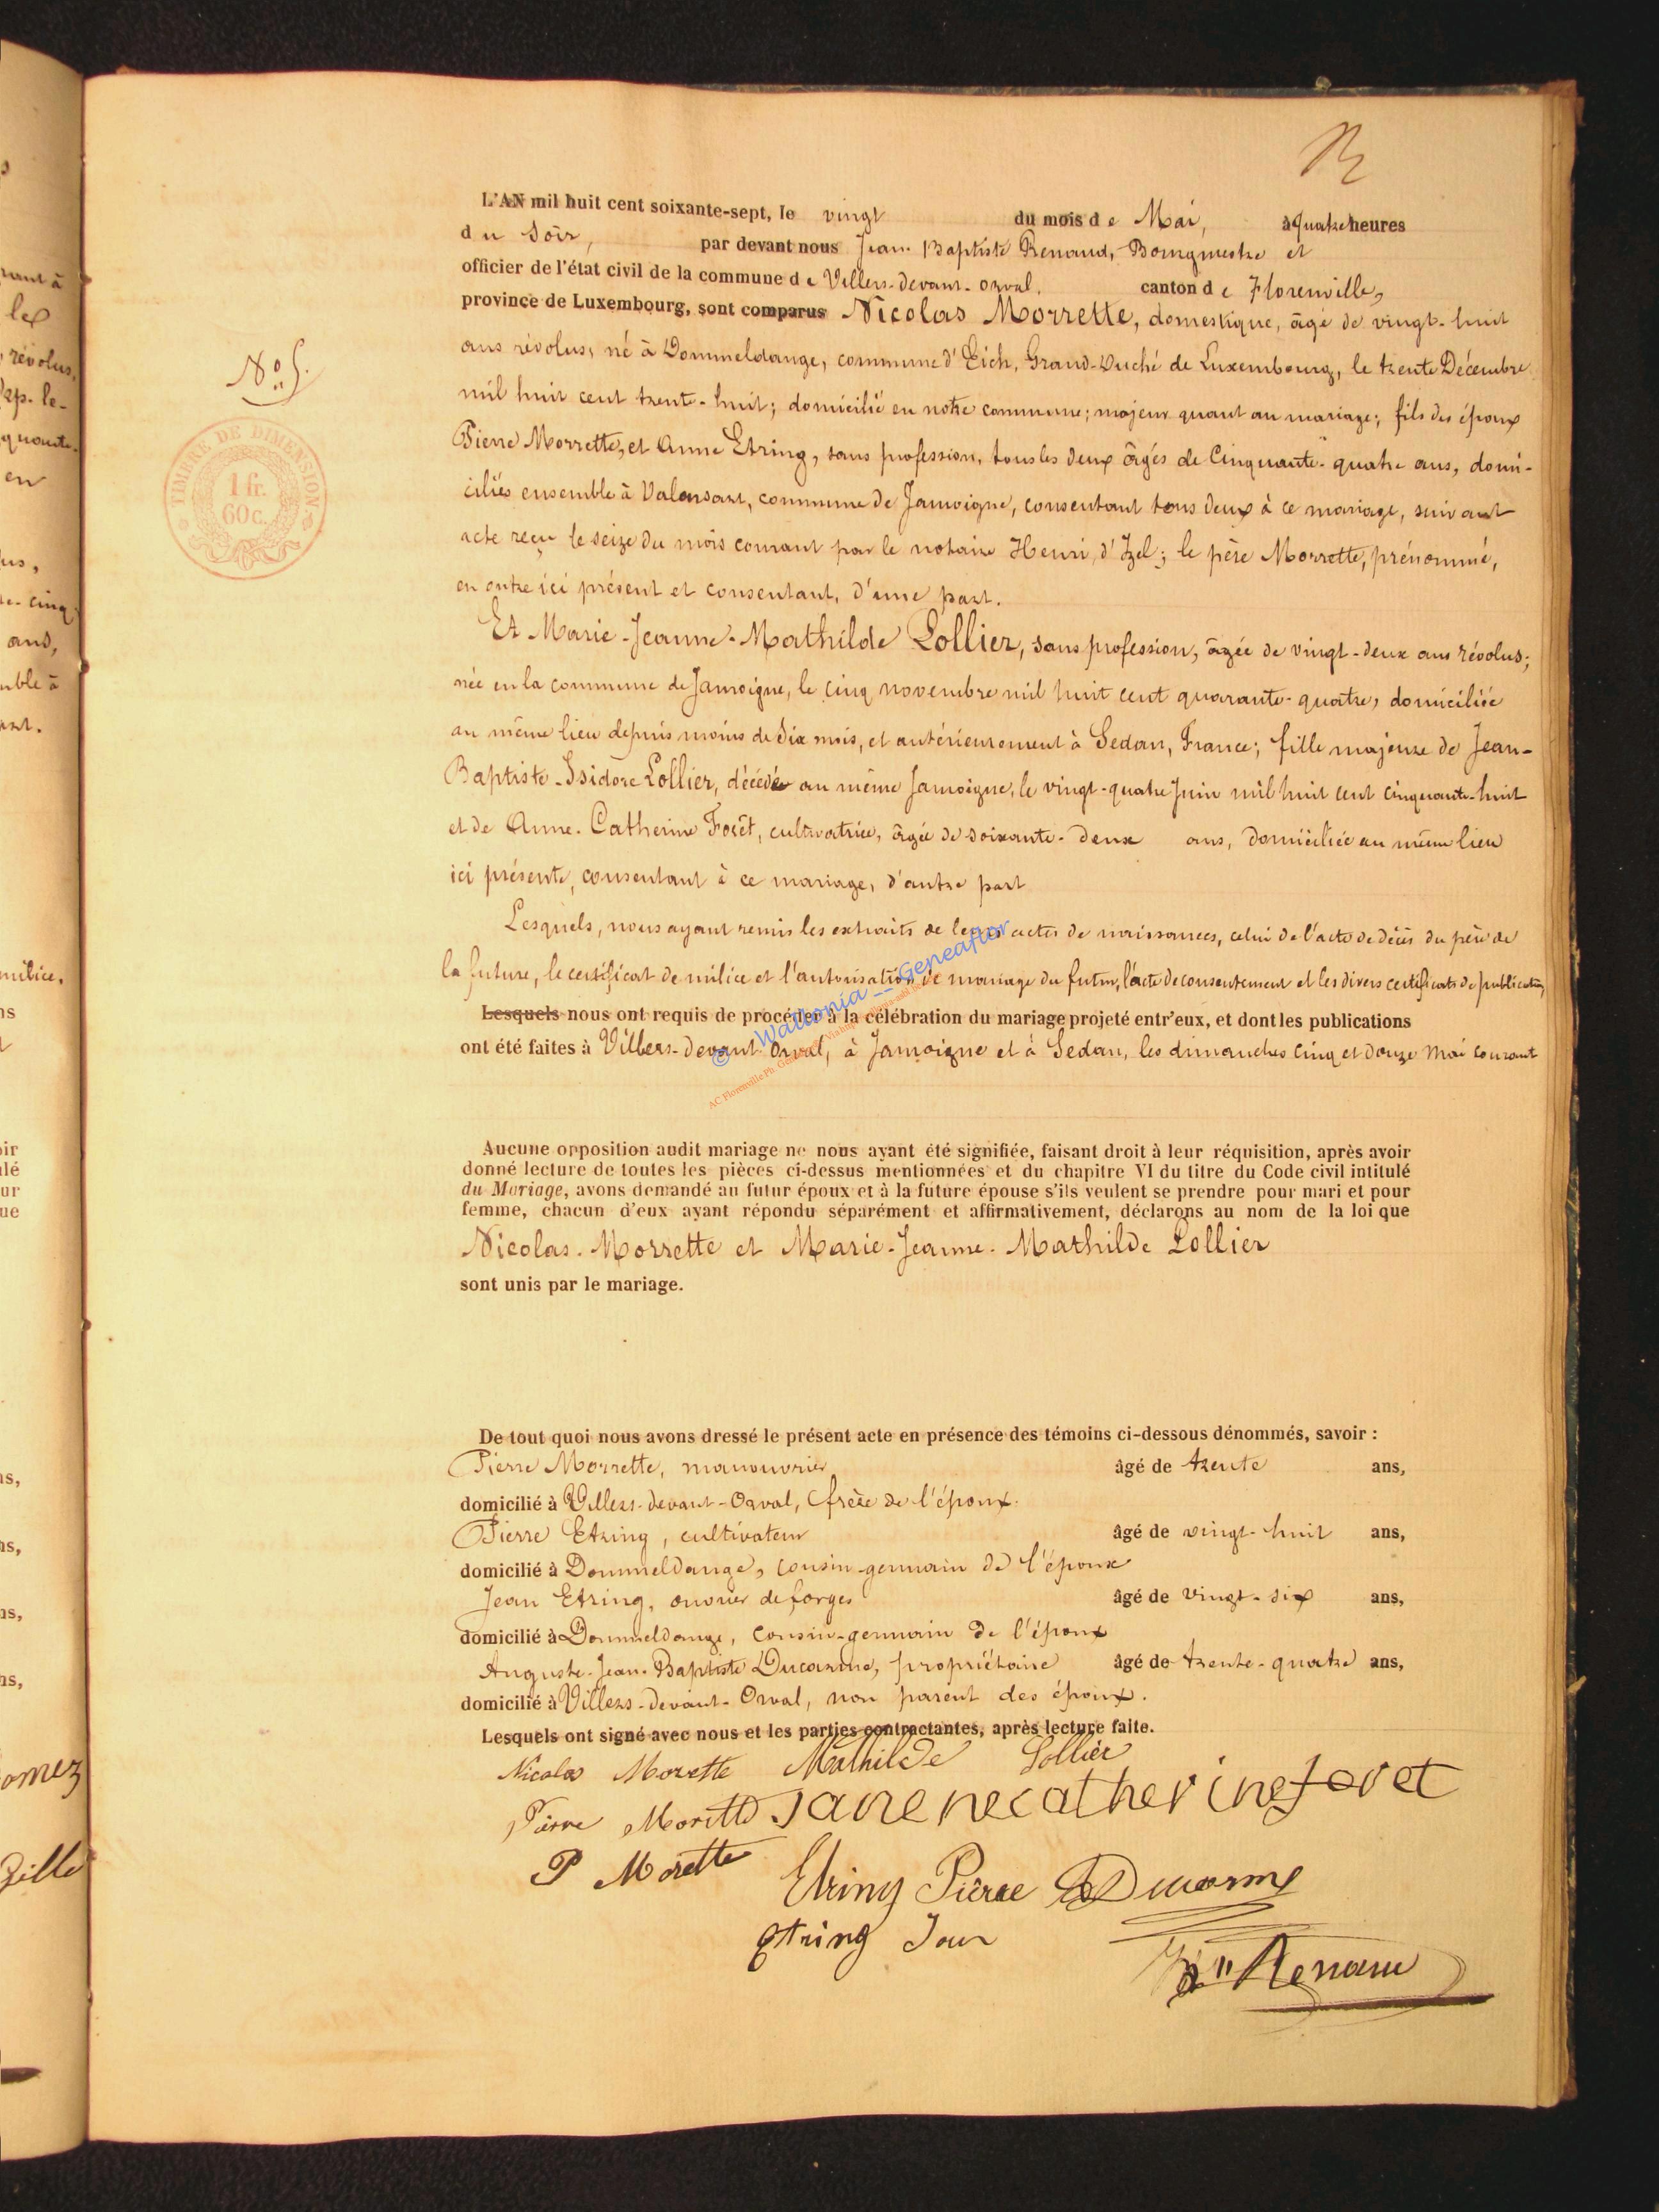 L'AN mil huit cent soixante-sept, le vingt du mois de Mai, à quatre heures
du Soir, par devant nous Jean-Baptiste Renaud, Bourgmestre et
officier de l'état civil de la commune de Villers-devant-Orval, canton de Florenville,
province de Luxembourg, sont comparus Nicolas Morrette, domestique, âgé de vingt-huit
ans révolus, né à Dommeldange, commune d'Eich, Grand-Duché de Luxembourg, le trente Décembre
mil huit cent trente-huit; domicilié en notre commune; majeur quant au mariage; fils des époux
Pierre Morrette, et Anne Etring, sans profession, tous les deux âgés de Cinquante-quatre ans, domi-
ciliés ensemble à Valansart, commune de Jamoigne, consentant tous deux à ce mariage, suivant
acte reçu le seize du mois courant par le notaire Henri, d'Izel; le père Morrette, prénommé,
en outre ici présent et consentant, d'une part.
Et Marie-Jeanne-Mathilde Lollier, sans profession, âgée de vingt-deux ans révolus;
née en la commune de Jamoigne, le cinq novembre mil huit cent quarante-quatre, domiciliée
au même lieu depuis moins de six mois, et antérieurement à Sedan, France; fille majeure de Jean-
Baptiste-Isidore Lollier, décédé au même Jamoigne, le vingt-quatre Juin mil huit cent cinquante-huit
et de Anne-Catherine Forêt, cultivatrice, âgée de soixante-deux ans, domiciliée au même lieu
ici présente, consentant à ce mariage, d'autre part
Lesquels, nous ayant remis les extraits de leurs actes de naissances, celui de l'acte de décès du père de
la future, le certificat de milice et l'autorisation de mariage du futur, l'acte de consentement et les divers certificats de publication,
Lesquels nous ont requis de procéder à la célébration du mariage projeté entr'eux, et dont les publications
ont été faites à Villers-devant-Orval, à Jamoigne et à Sedan, les dimanches cinq et douze Mai courant
Aucune opposition audit mariage ne nous ayant été signifiée, faisant droit à leur réquisition, après avoir
donné lecture de toutes les pièces ci-dessus mentionnées et du chapitre VI du titre du Code civil intitulé
du Mariage, avons demandé au futur époux et à la future épouse s'ils veulent se prendre pour mari et pour
femme, chacun d'eux ayant répondu séparément et affirmativement, déclarons au nom de la loi que
Nicolas-Morrette et Marie-Jeanne-Mathilde Lollier
sont unis par le mariage.
De tout quoi nous avons dressé le présent acte en présence des témoins ci-dessous dénommés, savoir :
Pierre Morrette, manouvrier âgé de trente ans,
domicilié à Villers-devant-Orval, frère de l'époux.
Pierre Etring, cultivateur âgé de vingt-huit ans,
domicilié à Dommeldange, cousin-germain de l'époux
Jean Etring, ouvrier de forges âgé de vingt-six ans,
domicilié à Dommeldange, cousin-germain de l'époux
Auguste-Jean-Baptiste Ducarme, propriétaire âgé de trente-quatre ans,
domicilié à Villers-devant-Orval, non parent des époux.
Lesquels ont signé avec nous et les parties contractantes, après lecture faite.
Nicolas Morette Mathilde Lollier
Pierre Morette catherine foret
P Morette Etring Pierre Ducarme
Etring Jean
Renaud
No 5.
TIMBRE DE DIMENSION
1 fr.
60 c.
© Wallonia -- Geneaflor